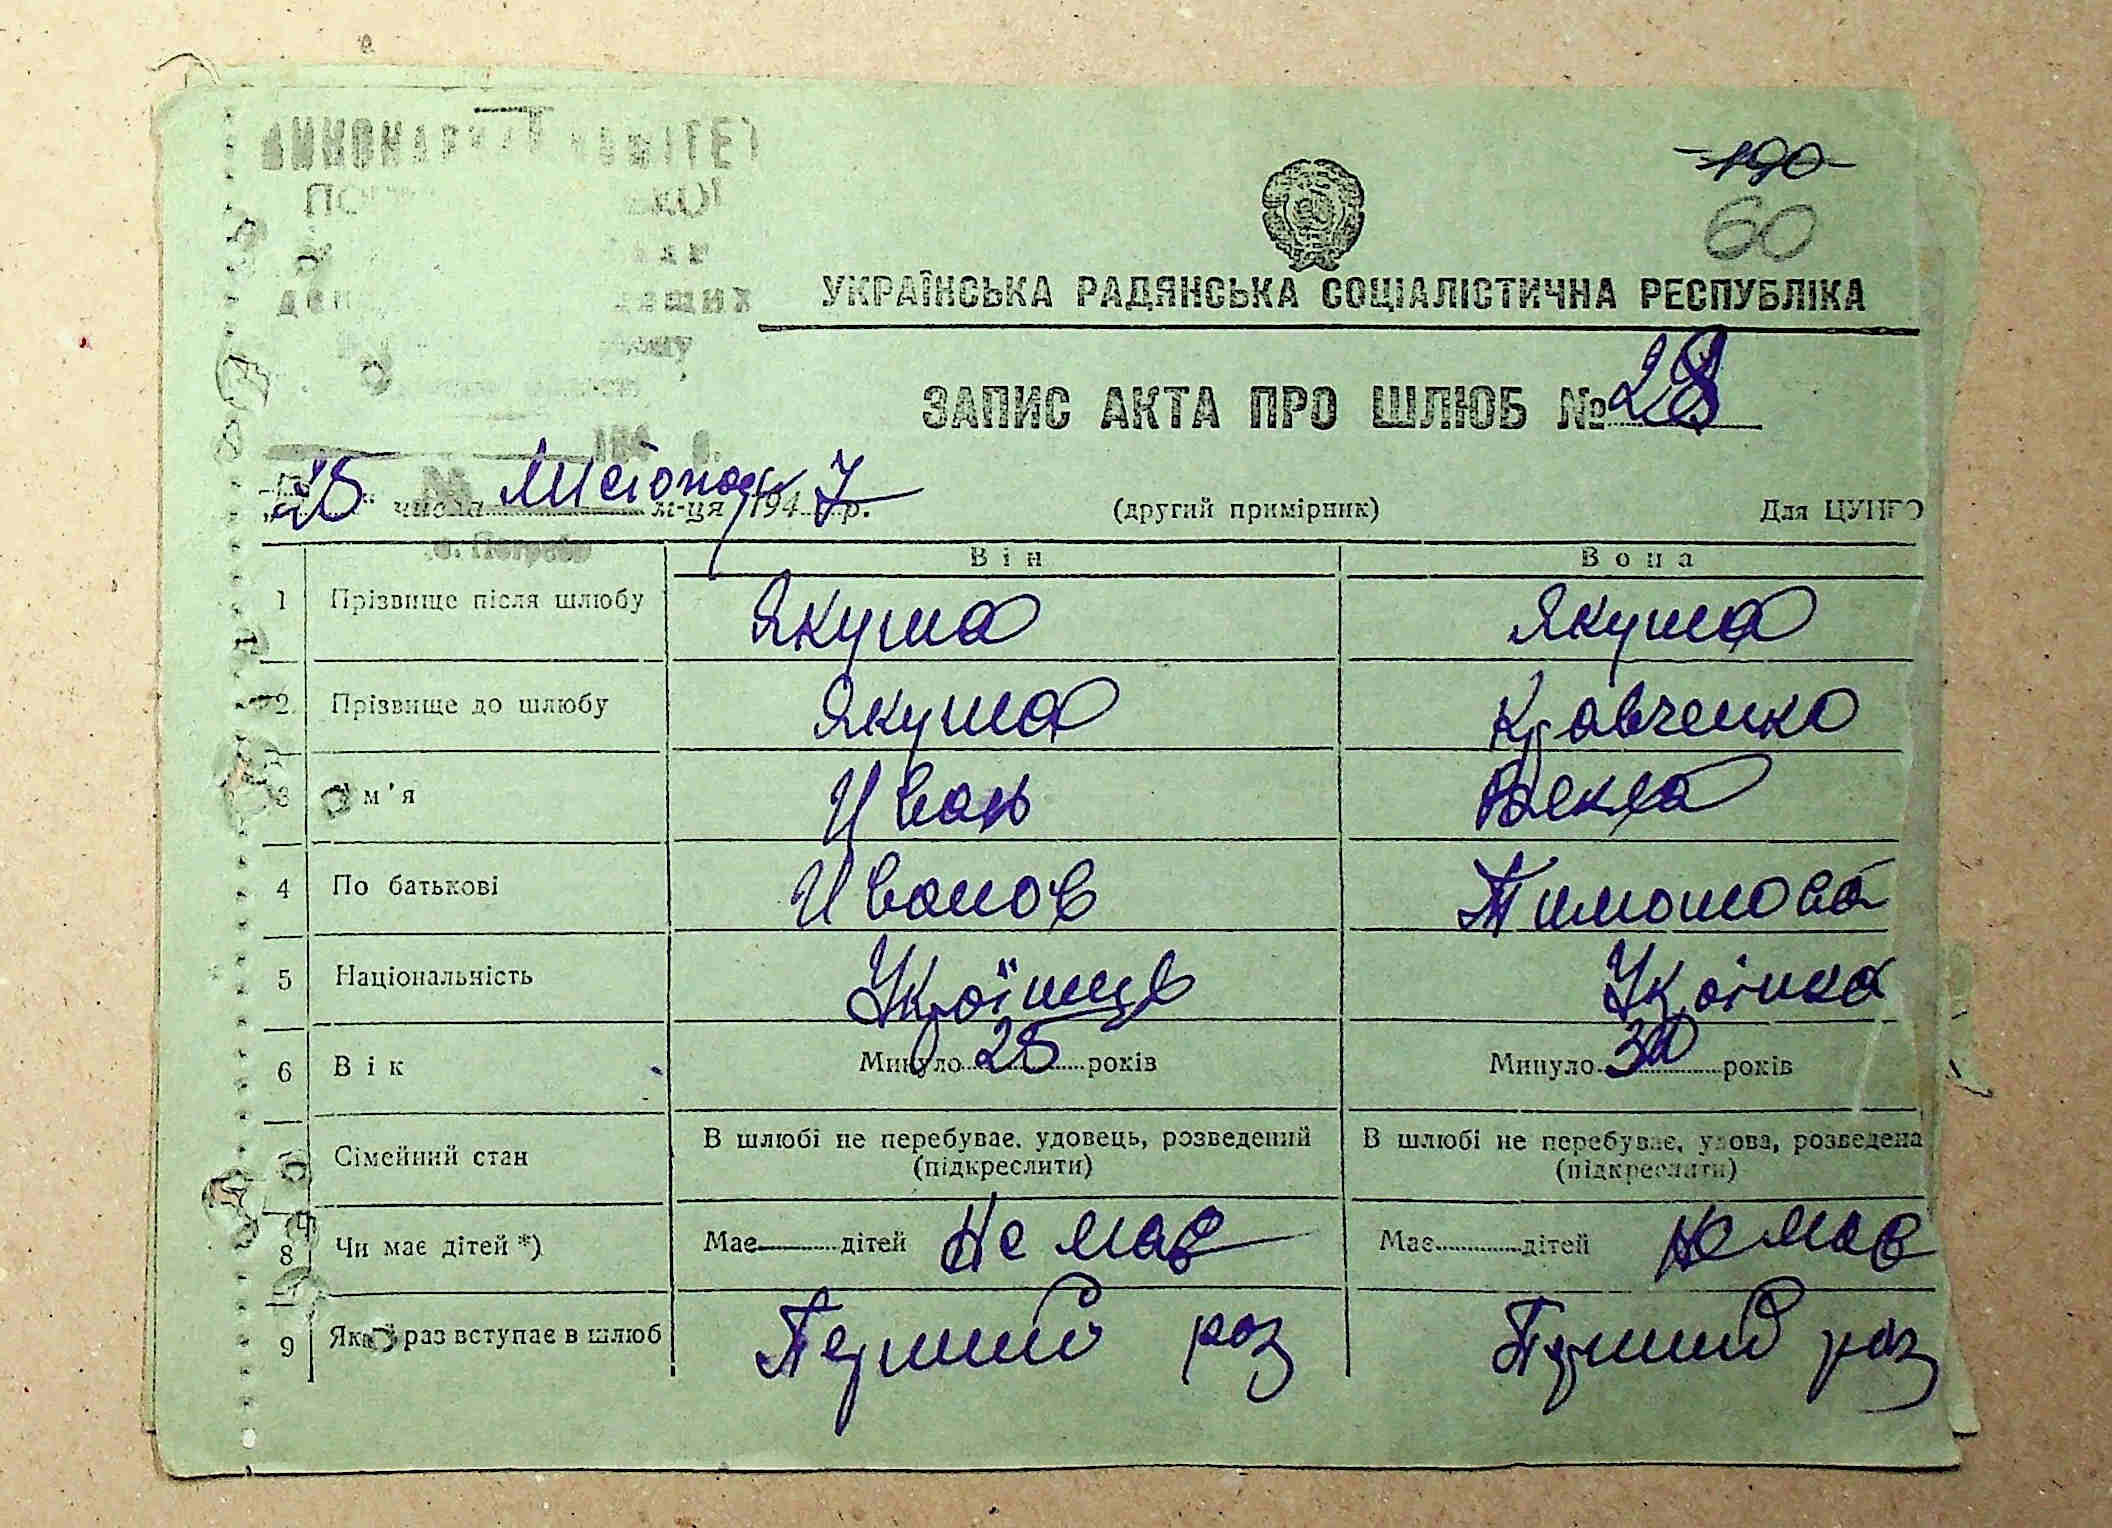 ВИКОНАВЧИЙ КОМІТЕТ
190
60
УКРАЇНСЬКА РАДЯНСЬКА СОЦІАЛІСТИЧНА РЕСПУБЛІКА
ЗАПИС АКТА ПРО ШЛЮБ № 28
числа м-ця 1947 р. (другий примірник) Для ЦУНГО
Він Вона
1 Прізвище після шлюбу Якуша Якуша
2 Прізвище до шлюбу Якуша Кравченко
3 м'я Иван Векла
4 По батькові Иванов Тимошова
5 Національність Українць Україінка
6 Вік Минуло 25 років Минуло 30 років
Сімейний стан В шлюбі не перебуває, удовець, розведений В шлюбі не перебуває, удова, розведена
(підкреслити) (підкреслити)
8 Чи має дітей *) Має дітей Не має Має дітей Не має
9 Який раз вступає в шлюб Перший раз Перший раз